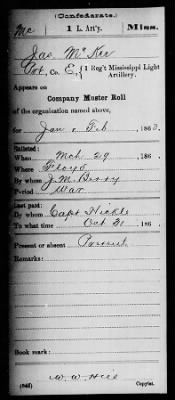 (Confederate.)
Mc 1 L. Art'y. Miss.
Jas. McKee
Pvt., Co. E, 1 Reg't Mississippi Light
Artillery.
Appears on
Company Muster Roll
of the organization named above,
for Jan & Feb, 1863.
Enlisted:
When Mch 29, 186 .
Where Floyd
By whom J. M. Berry
Period War
Last paid:
By whom Capt. Nickle
To what time Oct 31, 186 .
Present or absent Present
Remarks:
Book mark:
W. W. Hill
(642) Copyist.